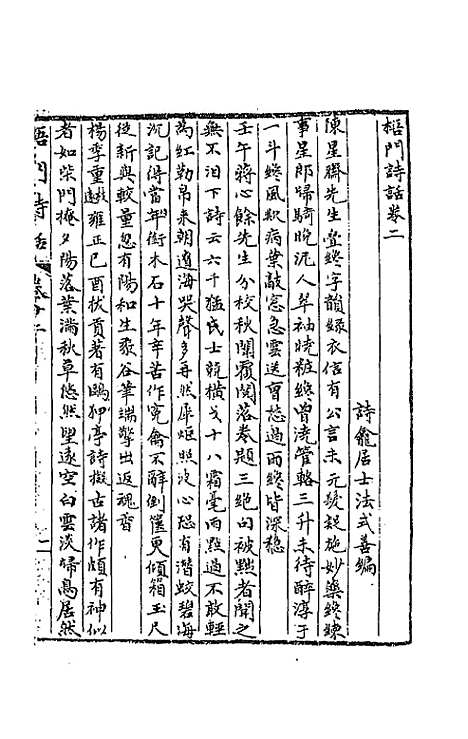 梧門詩話卷二
詩龕居士法式善編
陳星聯先生疊終字韻綠衣信有公言未元髮起施妙藥終諫
事星郎歸騎晚泥人翠袖曉粧終曾澆管輅三升未待醉淳于
一斗終風軟病葉敲窓急雲送會愁過雨終皆深穩
壬午蔣心餘先生分校秋闈覆閱落卷題三絕句被點者聞之
無不泪下詩云六千猛氏士競橫戈十八霜毫雨點過不敢輕
為紅勒帛來朝遼海哭聲多再然犀炬照波心恐有潛蛟碧海
沉記得當年銜木石十年辛苦作寃禽不辭倒篋更傾箱玉尺
從新與較量忽有陽和生黍谷筆端擎出返魂香
楊季重雍正己酉拔貢著有鷗卿亭詩擬古諸作頗有神似
者如柴門掩夕陽落葉滿秋草悠然望遠空白雲淡歸鳥居然
梧門詩話